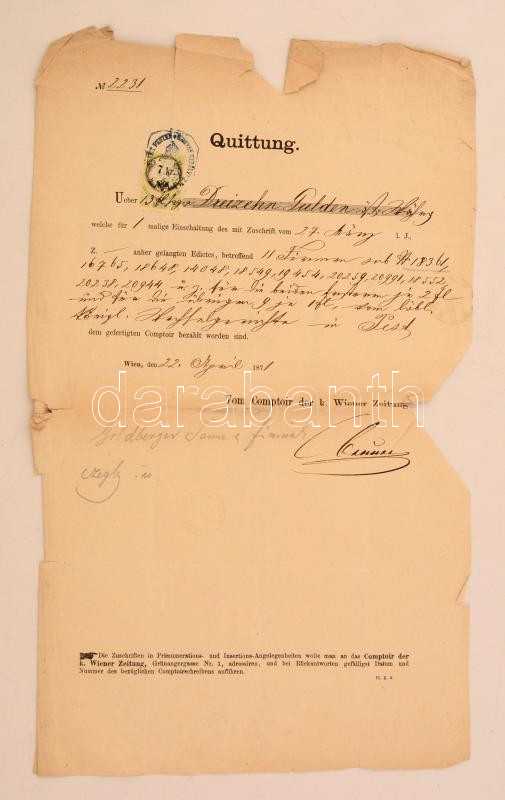 № 2231
Quittung.
7 kr.
Ueber 13 fl Dreizehn Gulden öst. Währg
welche für 1 malige Einschaltung des mit Zuschrift vom 27. März l. J.,
Z. — anher gelangten Edictes, betreffend 11 Firmen sub № 18361,
16765, 18648, 14048, 18549, 19454, 20259, 20991, 18552,
20238, 20944 u. z. für die beiden ersteren je 2 fl
und für die übrigen 9 je 1 fl, vom löbl.
königl. Wechselgerichte in Pest
dem gefertigten Comptoir bezahlt worden sind.
Wien, den 22. April 1871
Vom Comptoir der k. Wiener Zeitung
darabanth
Goldberger Samu
Die Zuschriften in Pränumerations- und Insertions-Angelegenheiten wolle man an das Comptoir der
k. Wiener Zeitung, Grünangergasse Nr. 1, adressiren, und bei Rückantworten gefälligst Datum und
Nummer des bezüglichen Comptoirschreibens anführen.